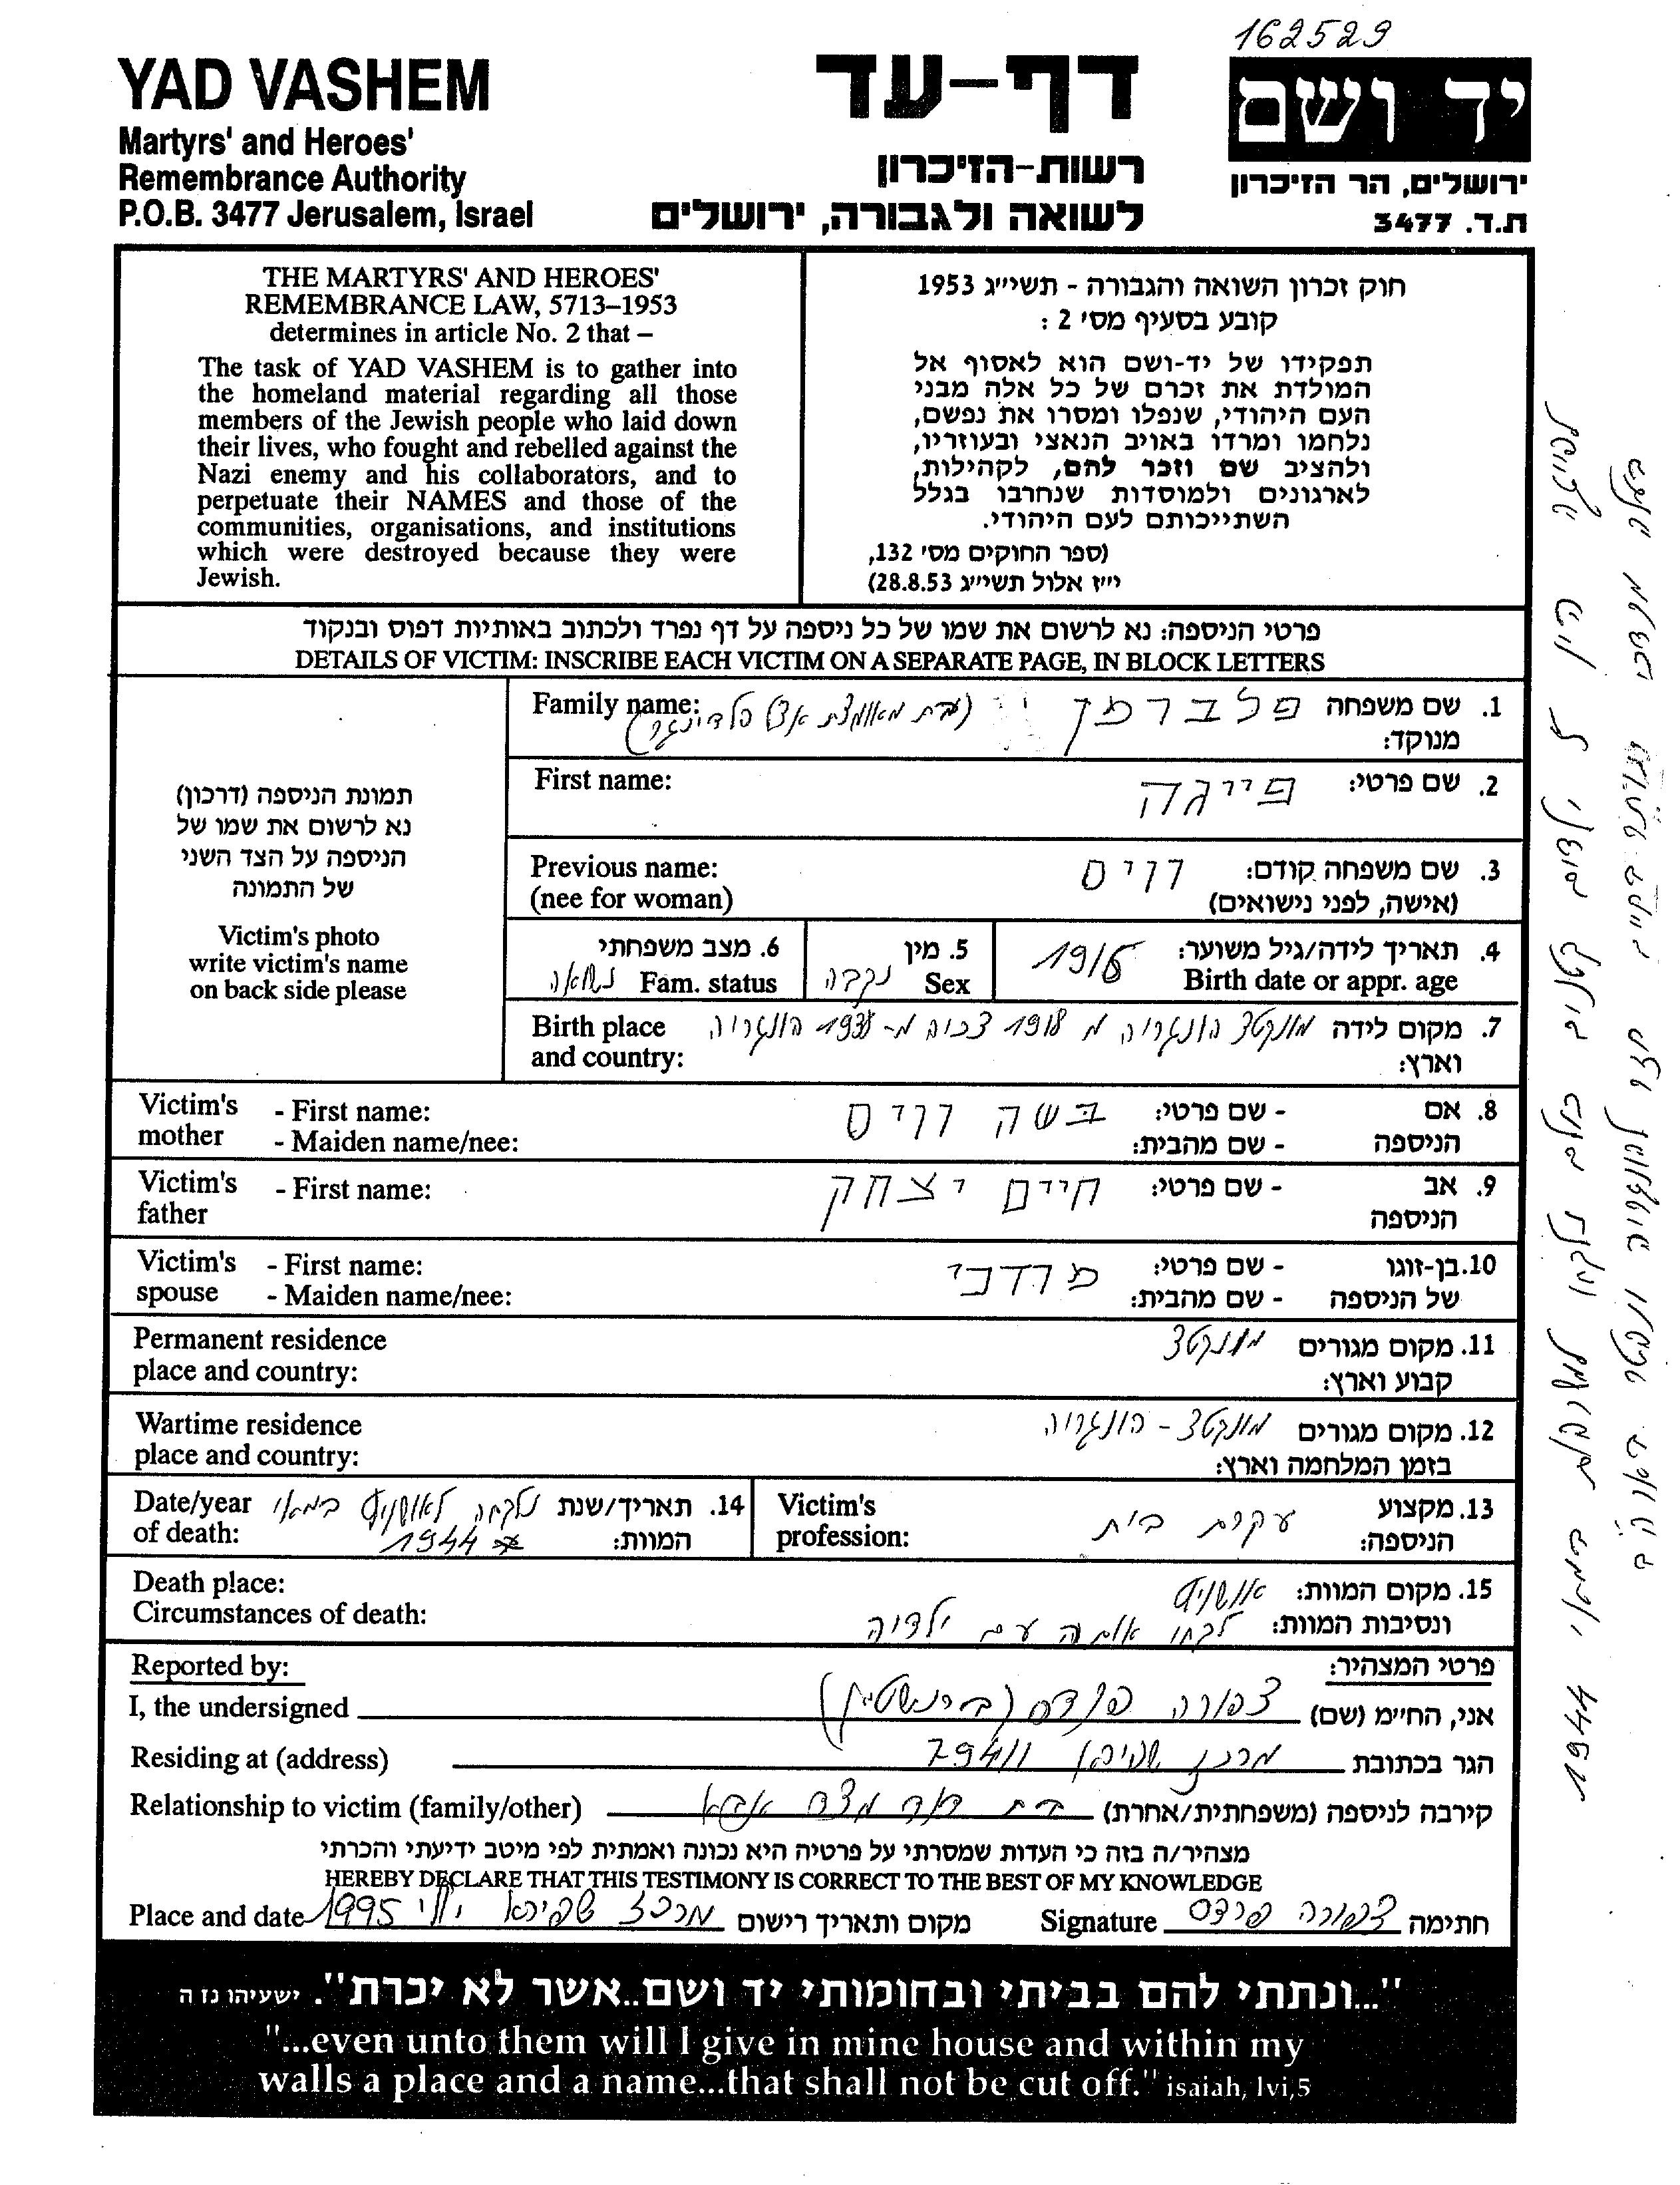 162529
YAD VASHEM
Martyrs' and Heroes'
Remembrance Authority
P.O.B. 3477 Jerusalem, Israel
דף-עד
רשות-הזיכרון
לשואה ולגבורה, ירושלים
יד ושם
ירושלים, הר הזיכרון
ת.ד. 3477
THE MARTYRS' AND HEROES'
REMEMBRANCE LAW, 5713–1953
determines in article No. 2 that –
The task of YAD VASHEM is to gather into
the homeland material regarding all those
members of the Jewish people who laid down
their lives, who fought and rebelled against the
Nazi enemy and his collaborators, and to
perpetuate their NAMES and those of the
communities, organisations, and institutions
which were destroyed because they were
Jewish.
חוק זכרון השואה והגבורה - תשי״ג 1953
קובע בסעיף מס׳ 2 :
תפקידו של יד-ושם הוא לאסוף אל
המולדת את זכרם של כל אלה מבני
העם היהודי, שנפלו ומסרו את נפשם,
נלחמו ומרדו באויב הנאצי ובעוזריו,
ולהציב שם וזכר להם, לקהילות,
לארגונים ולמוסדות שנחרבו בגלל
השתייכותם לעם היהודי.
(ספר החוקים מס׳ 132,
י״ז אלול תשי״ג 28.8.53)
פרטי הניספה: נא לרשום את שמו של כל ניספה על דף נפרד ולכתוב באותיות דפוס ובנקוד
DETAILS OF VICTIM: INSCRIBE EACH VICTIM ON A SEPARATE PAGE, IN BLOCK LETTERS
תמונת הניספה (דרכון)
נא לרשום את שמו של
הניספה על הצד השני
של התמונה
Victim's photo
write victim's name
on back side please
Family name: פלברמן 1. שם משפחה
מנוקד:
First name: פייגה 2. שם פרטי:
Previous name: דויס 3. שם משפחה קודם:
(nee for woman) (אישה, לפני נישואים)
6. מצב משפחתי 5. מין 4. תאריך לידה/גיל משוער:
נשואה Fam. status נקבה Sex 1916 Birth date or appr. age
Birth place מונקטש הונגריה מ 1918 צכיה מ- 1938 הונגריה 7. מקום לידה
and country: וארץ:
Victim's - First name: בשה דויס - שם פרטי: 8. אם
mother - Maiden name/nee: - שם מהבית: הניספה
Victim's - First name: חיים יצחק - שם פרטי: 9. אב
father הניספה
Victim's - First name: מרדכי - שם פרטי: 10. בן-זוגו
spouse - Maiden name/nee: - שם מהבית: של הניספה
Permanent residence מונקטש 11. מקום מגורים
place and country: קבוע וארץ:
Wartime residence מונקטש - הונגריה 12. מקום מגורים
place and country: בזמן המלחמה וארץ:
Date/year נלקחה לאושויץ במאי 14. תאריך/שנת
of death: 1944 המוות:
Victim's עקרת בית 13. מקצוע
profession: הניספה:
Death place: אושויץ 15. מקום המוות:
Circumstances of death: לקחו אותה עם ילדיה ונסיבות המוות:
Reported by: פרטי המצהיר:
I, the undersigned צפורה פרדס (ברנשטיין) אני, החי״מ (שם)
Residing at (address) מרכז שפירא 79411 הגר בכתובת
Relationship to victim (family/other) בת דוד מצד אבא קירבה לניספה (משפחתית/אחרת)
מצהיר/ה בזה כי העדות שמסרתי על פרטיה היא נכונה ואמתית לפי מיטב ידיעתי והכרתי
HEREBY DECLARE THAT THIS TESTIMONY IS CORRECT TO THE BEST OF MY KNOWLEDGE
Place and date מרכז שפירא יולי 1995 מקום ותאריך רישום Signature צפורה פרדס חתימה
"...ונתתי להם בביתי ובחומותי יד ושם..אשר לא יכרת". ישעיהו נז ה
"...even unto them will I give in mine house and within my
walls a place and a name...that shall not be cut off." isaiah, lvi,5